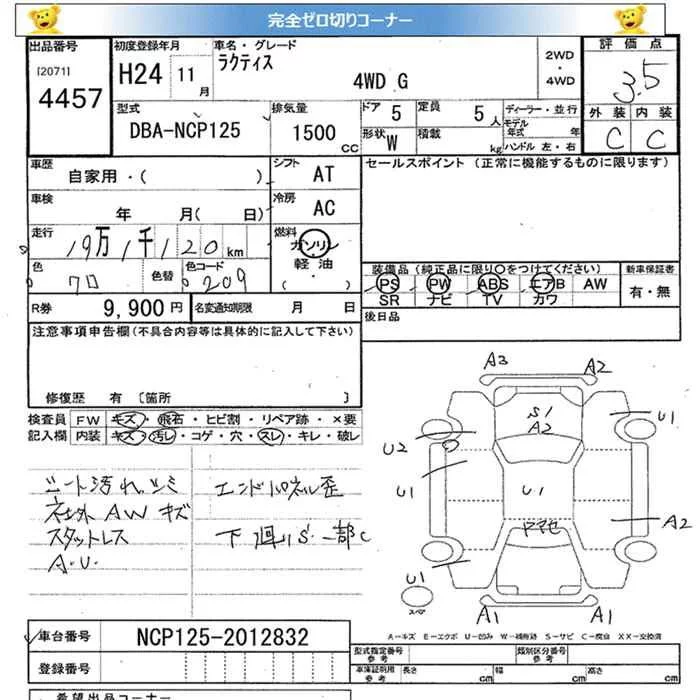 完全ゼロ切りコーナー
出品番号 初度登録年月 車名・グレード 2WD・4WD 評価点
[2071] 4457 H24 11月 ラクティス 4WD G 3.5
型式 DBA-NCP125 排気量 1500 CC
ドア 5 定員 5人 ディーラー・並行
形状 W 積載 kg モデル年式 年
ハンドル 左・右
外装 内装
C C
車歴 自家用・( ) シフト AT セールスポイント (正常に機能するものに限ります)
車検 年 月( 日) 冷房 AC
走行 19万1千120km 燃料 ガソリン
軽油
( )
色 クロ 色替 色コード 209
装備品(純正品に限り○をつけてください) 新車保証書
PS PW ABS エアB AW 有・無
SR ナビ TV カワ
R券 9,900円 名変通知期限 月 日 後日品
注意事項申告欄(不具合内容等は具体的に記入して下さい)
修復歴 有 〔箇所 〕
検査員 FW キズ・飛石・ヒビ割・リペア跡・×要
記入欄 内装 キズ・汚レ・コゲ・穴・スレ・キレ・破レ
シート汚れ シミ エンドパネル歪
社外AWキズ
スタットレス 下廻りS・一部C
A・U・
A3 A2
S1
A2
U1
U2
U1 U1
ヤマセ A2
U1
スペア
A1 A1
A-キズ E-エクボ U-凹み W-補修跡 S-サビ C-腐食 XX-交換済
車台番号 NCP125-2012832 型式指定番号 参考 類別区分番号 参考
登録番号 車庫証明用 参考 長さ cm 幅 cm 高さ cm
希望出品コーナー